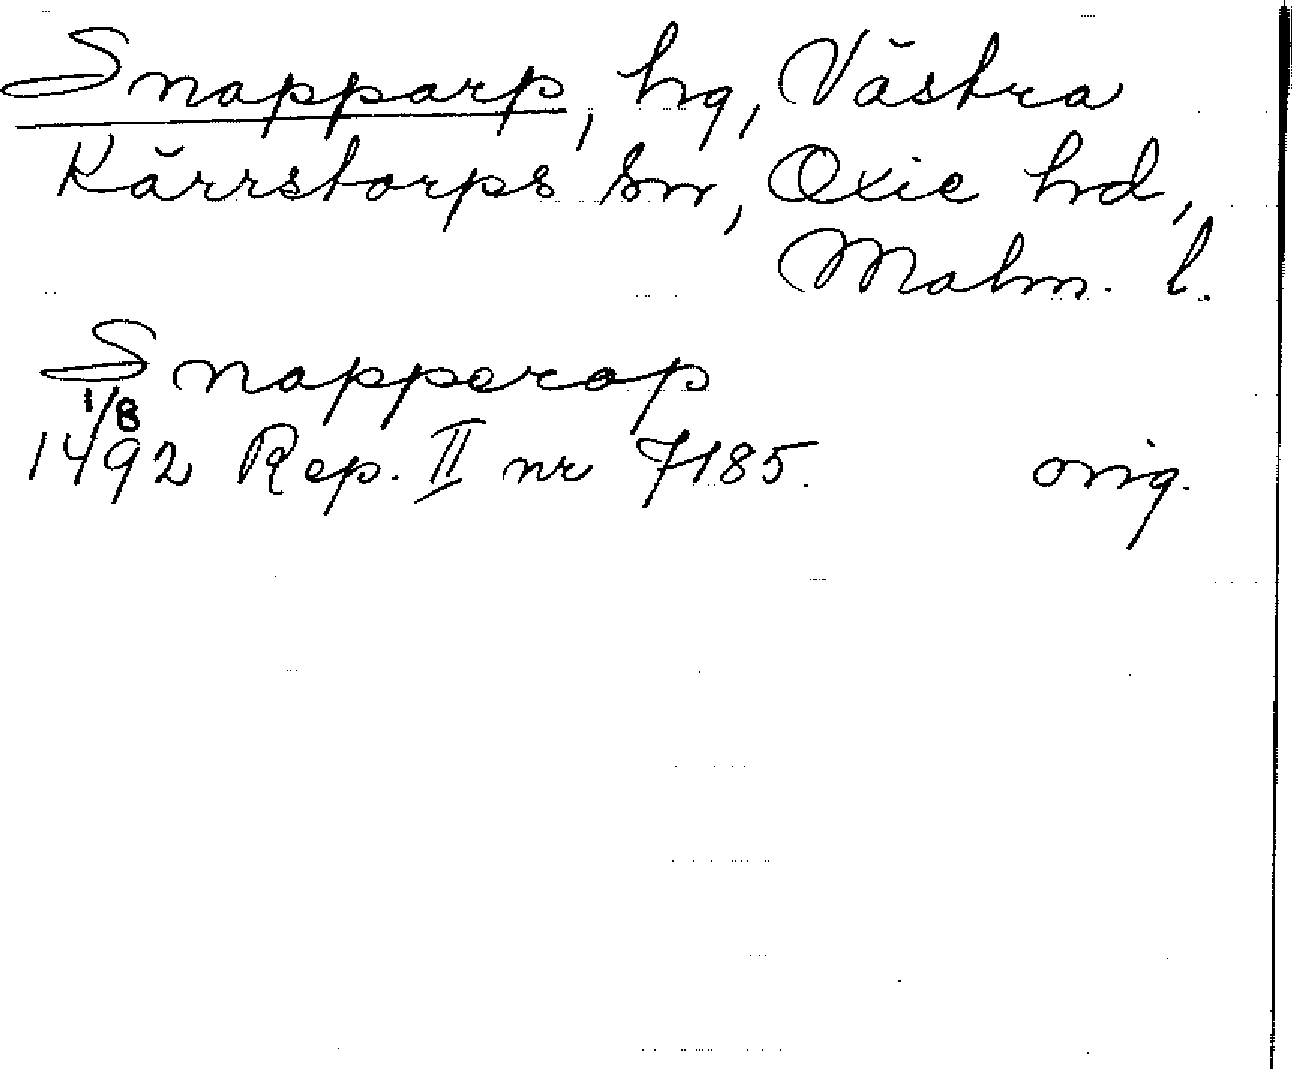 Snapparp, hg, Västra
Kärrstorps sn, Oxie hd,
Malm. l.
Snapperop
1/8
1492 Rep. II nr 7185. orig.